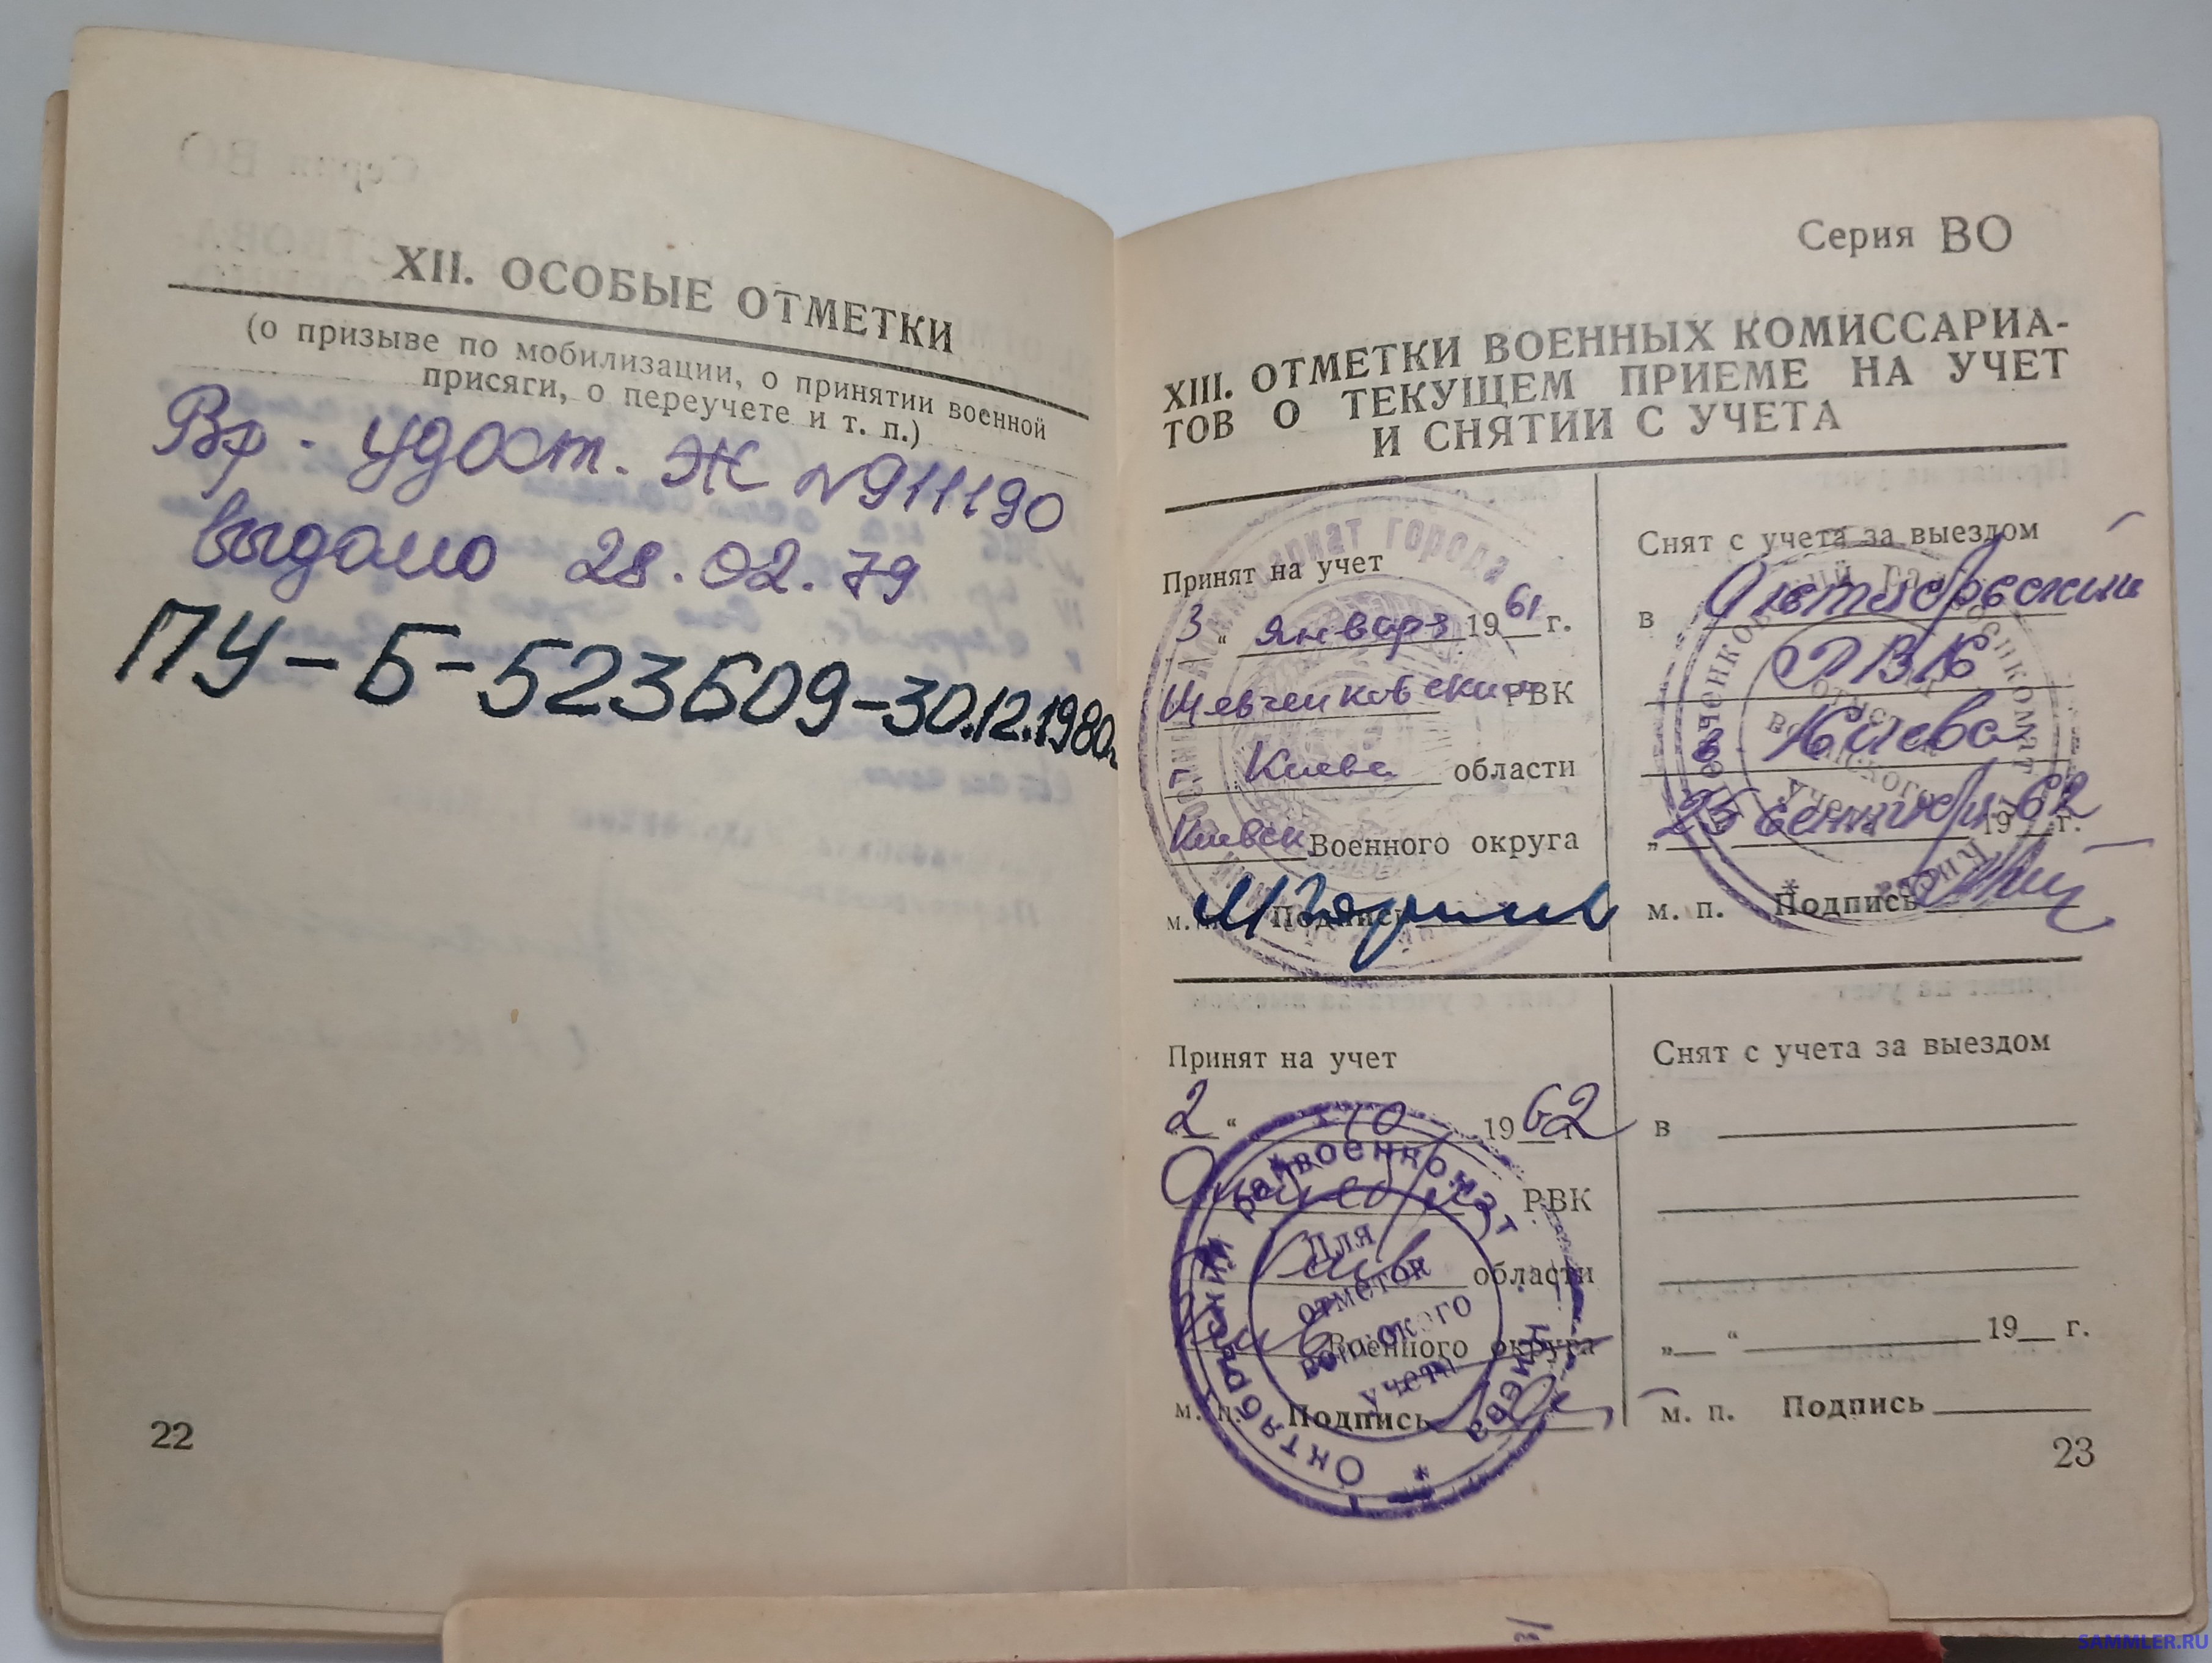 XII. ОСОБЫЕ ОТМЕТКИ
(о призыве по мобилизации, о принятии военной
присяги, о переучете и т. п.)
Вр. удост. Ж №911190
выдано 28.02.79
ПУ-Б-523609-30.12.1980г.
22
Серия ВО
XIII. ОТМЕТКИ ВОЕННЫХ КОМИССАРИА-
ТОВ О ТЕКУЩЕМ ПРИЕМЕ НА УЧЕТ
И СНЯТИИ С УЧЕТА
Принят на учет
3 “ января 1961 г.
Шевченковским РВК
г. Киева области
Киевск Военного округа
м. п. Подпись
Снят с учета за выездом
в Октябрьский
РВК
г. Киева
„25 сентября 1962 г.
м. п. Подпись
Шевченковский райвоенкомат
отметок
воинского
учета
Киева
Комиссариат города
Принят на учет
2 “ 10 1962 г.
РВК
Киев области
Киев Военного округа
м. п. Подпись
Октябрьский райвоенкомат г. Киева
Для
отметок
воинского
учета
Снят с учета за выездом
в
„ “ 19 г.
м. п. Подпись
23
SAMMLER.RU